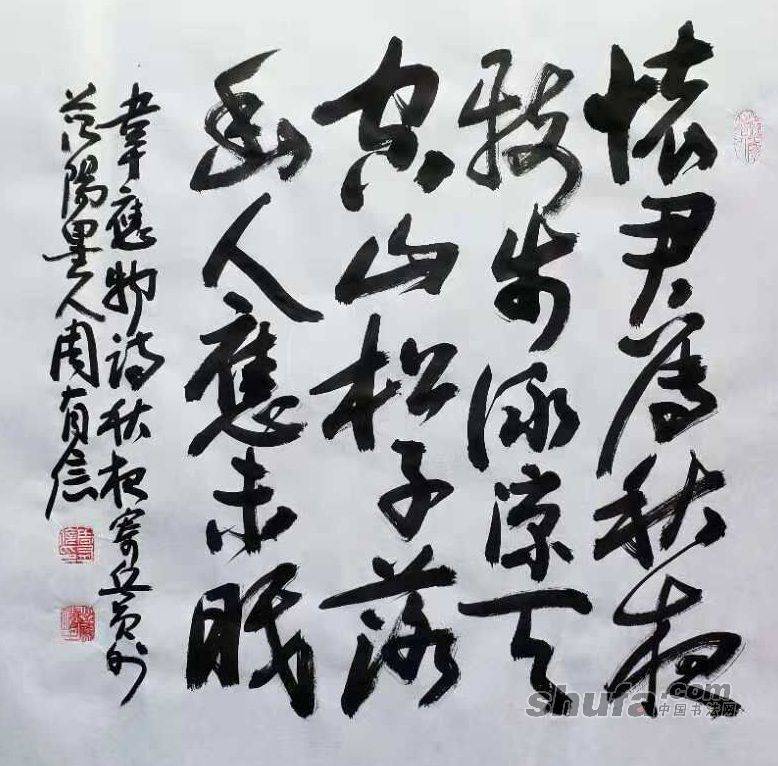 懷君屬秋夜
散步詠凉天
空山松子落
幽人應未眠
韋應物詩秋夜寄丘員外
范陽墨人周有信
shufa.com
中国书法网